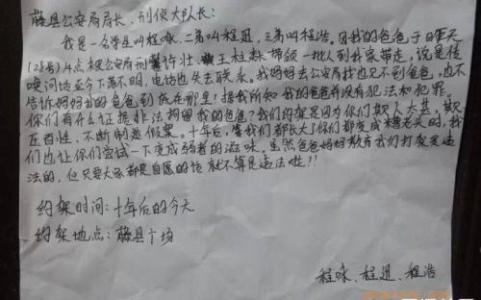 藤县公安局局长,刑侦大队长:
我是一名学生叫程咏,二弟叫程迅,三弟叫程浩。因我的爸爸于昨天
(28号)4点被公安局刑警许壮、王柱麸带领一批人到我家带走,说是传
唤问话至今下落不明,电话也失去联系,我妈妈去公安局找也见不到爸爸,也不
告诉妈妈我的爸爸到底在哪里!据我所知我的爸爸并没有犯法和犯罪
你们有什么证据非法拘留我的爸爸?我们约架是因为你们欺人太甚,欺
压百姓,不断制造假案,十年后,等我们都长大了你们都变成糟老头时,我
们也让你们尝试一下变成弱者的滋味。虽然爸爸妈妈教育我们打架是违
法的,但只要大家都是自愿的话就不算是违法啦!!
约架时间:十年后的今天
约架地点:藤县广场
程咏、程迅、程浩